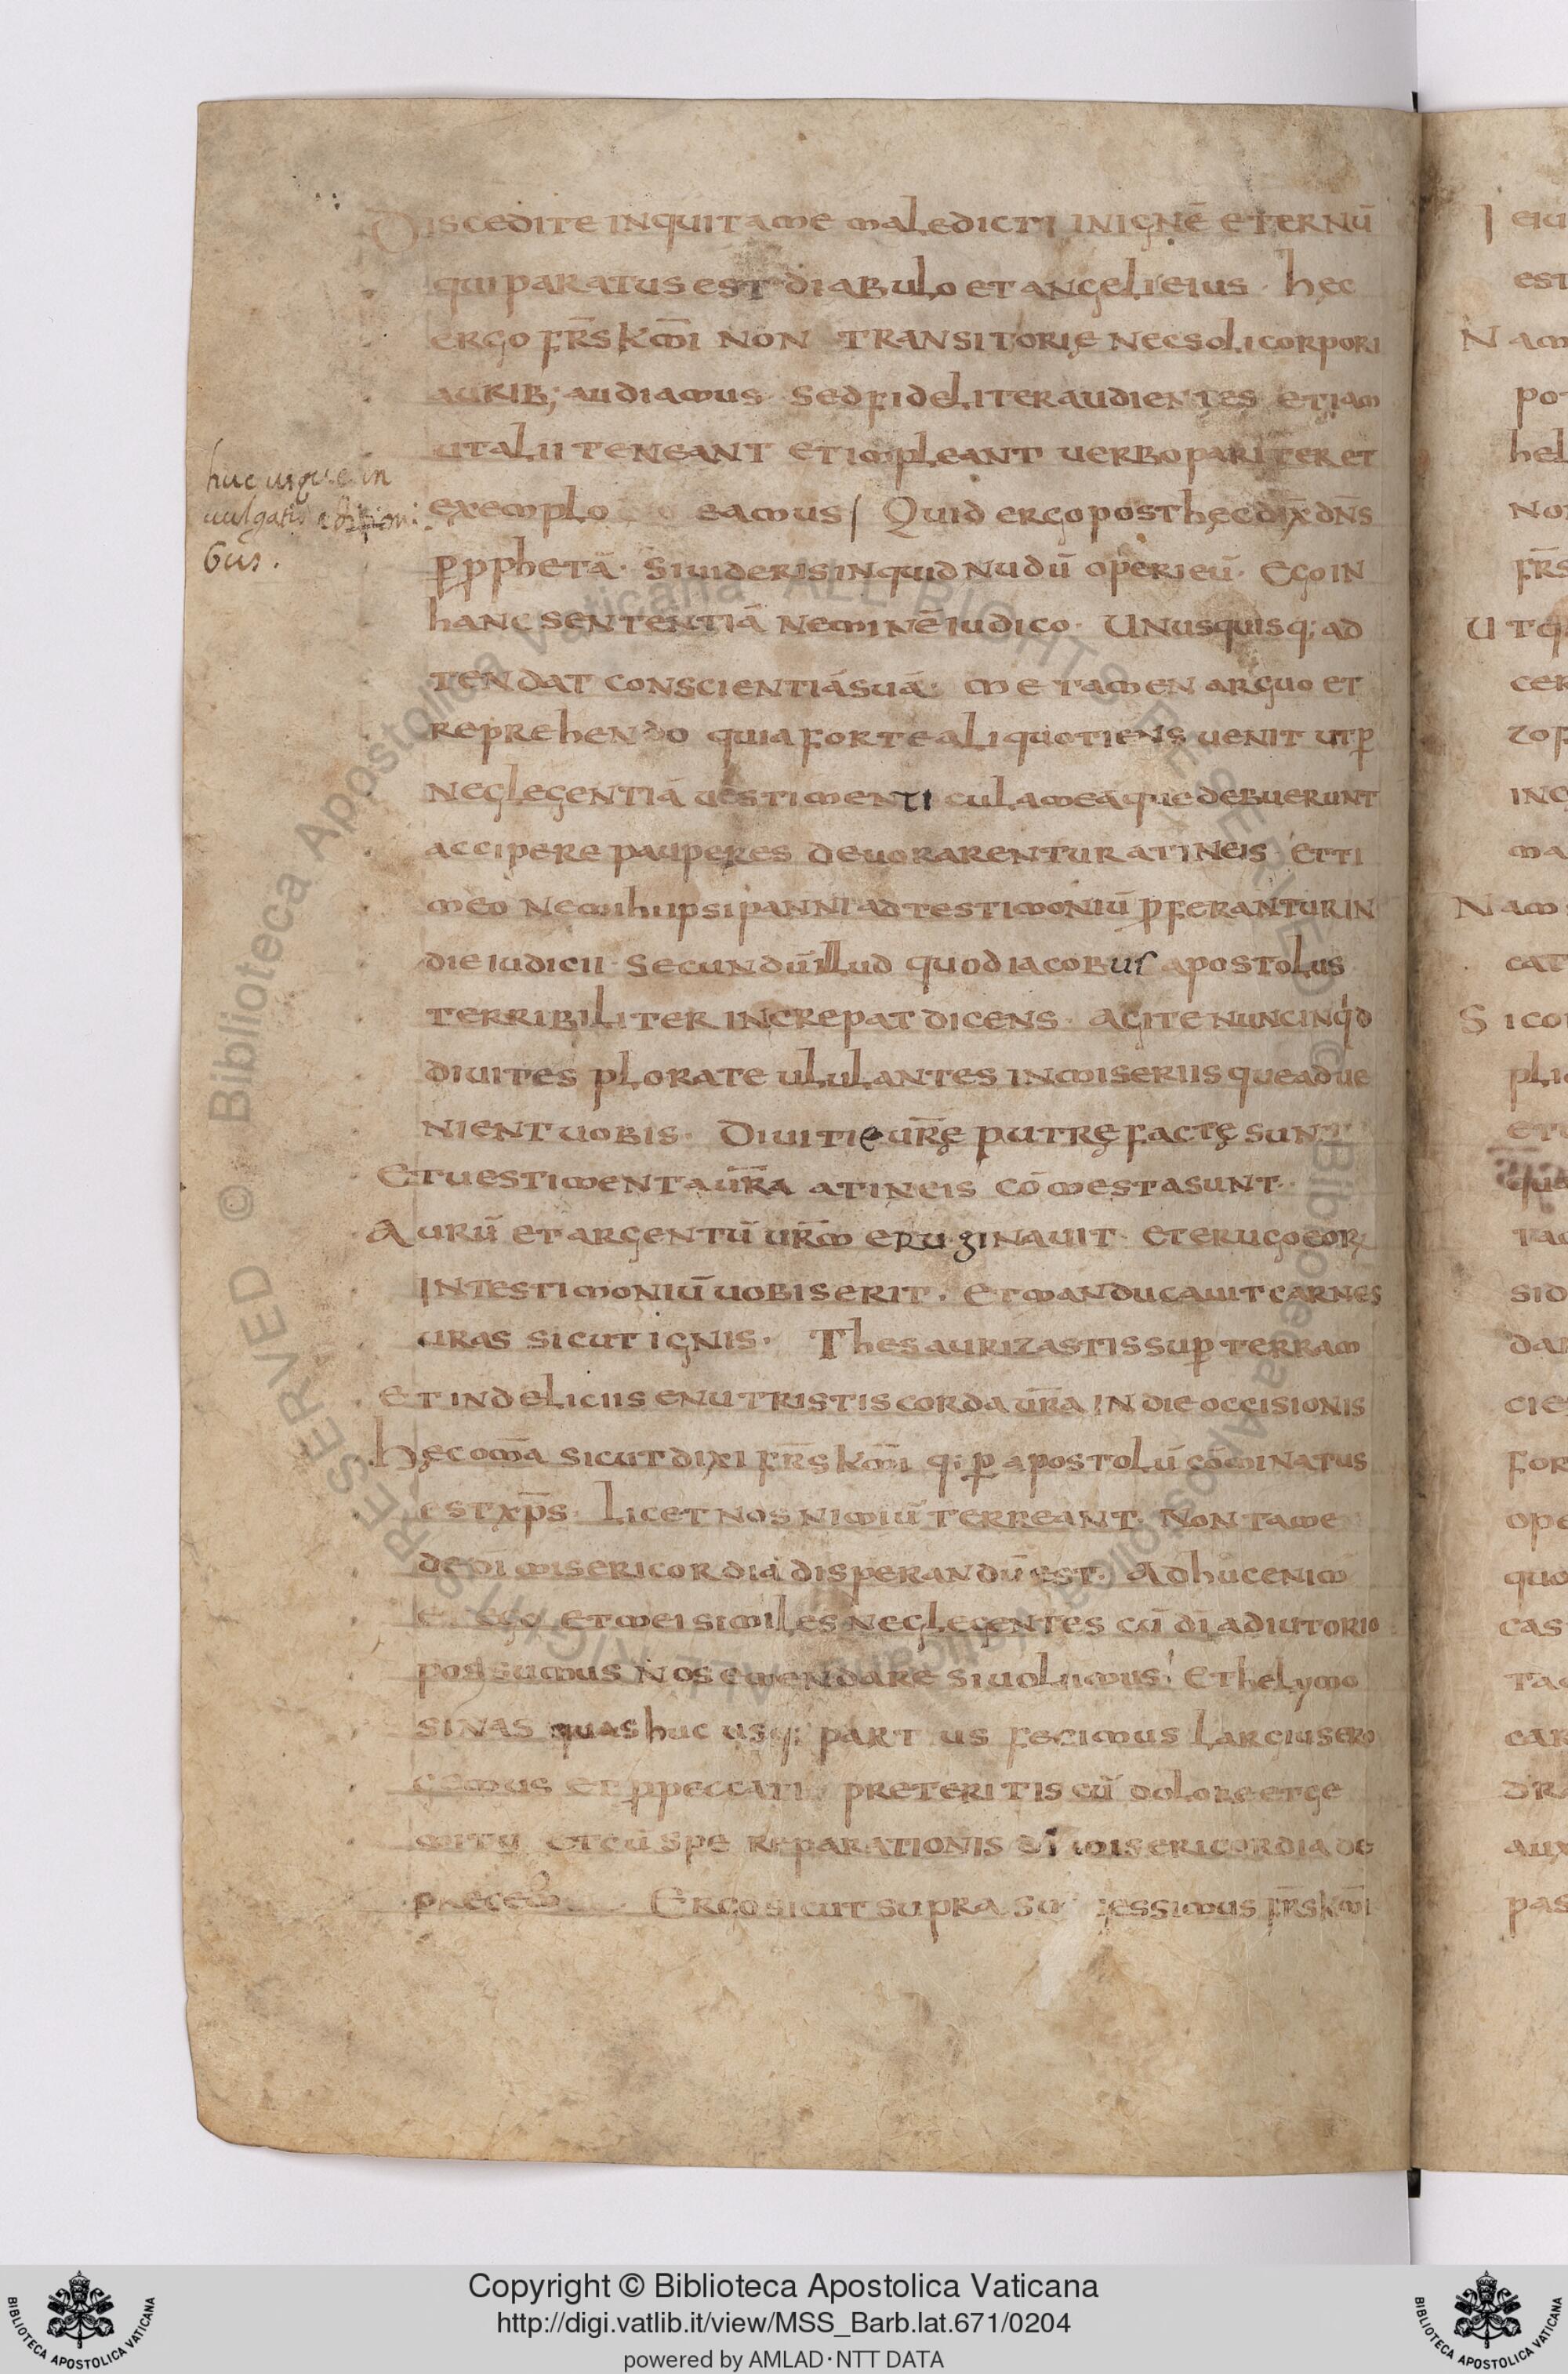 Discedite inquit a me maledicti in ignē eternū
qui paratus est diabulo et angeli eius · hęc
ergo fr̄s km̄i non transitorie nec soli corpori
aurib; audiamus · sed fideliter audientes etiam
ut alii teneant et impleant uerbo pariter et
exemplo eamus / Quid ergo post hęc dix̄ dn̄s
huc usque in
uulgatis editioni
bus.
ꝑ ꝓphetā · Si uideris inquid nudū operi eū · Ego in
hanc sententiā neminē iudico · Unusquisq; ad
tendat conscientiā suā · me tamen arguo et
reprehendo quia forte aliquotiens uenit ut ꝑ
neglegentiā uestimenticula mea que debuerunt
accipere pauperes deuorarentur a tineis · et ti
meo ne mihi ipsi panni ad testimoniū ꝓferantur in
die iudicii · Secundū illud quod iacobus apostolus
terribiliter increpat dicens · Agite nunc inqd
diuites plorate ululantes in miseriis que adue
nient uobis · Diuitie ur̄ę putręfactę sunt
Et uestimenta ur̄a a tineis cōmesta sunt ·
Aurū et argentū ur̄m eruginauit · et erugo eorꝝ
in testimoniū uobis erit · et manducauit carnes
uras sicut ignis · Thesaurizastis suꝑ terram
et in deliciis enutristis corda ur̄a in die occisionis
hęc om̄a sicut dixi fr̄s km̄i q; ꝑ apostolū cōminatus
est xp̄s · licet nos nimiū terreant · Non tame
de dī misericordia disperandū est · Adhuc enim
et ego et mei similes neglegentes cū dī adiutorio
possumus nos emendare si uolumus · Et helymo
sinas quas huc usq; part us fecimus largius ero
gemus et ꝓ peccati preteritis cū dolore et ge
mitu et cū spe reparationis dī misericordia de
Ergo sicut supra su gessimus fr̄s km̄i
Copyright © Biblioteca Apostolica Vaticana
http://digi.vatlib.it/view/MSS_Barb.lat.671/0204
powered by AMLAD·NTT DATA